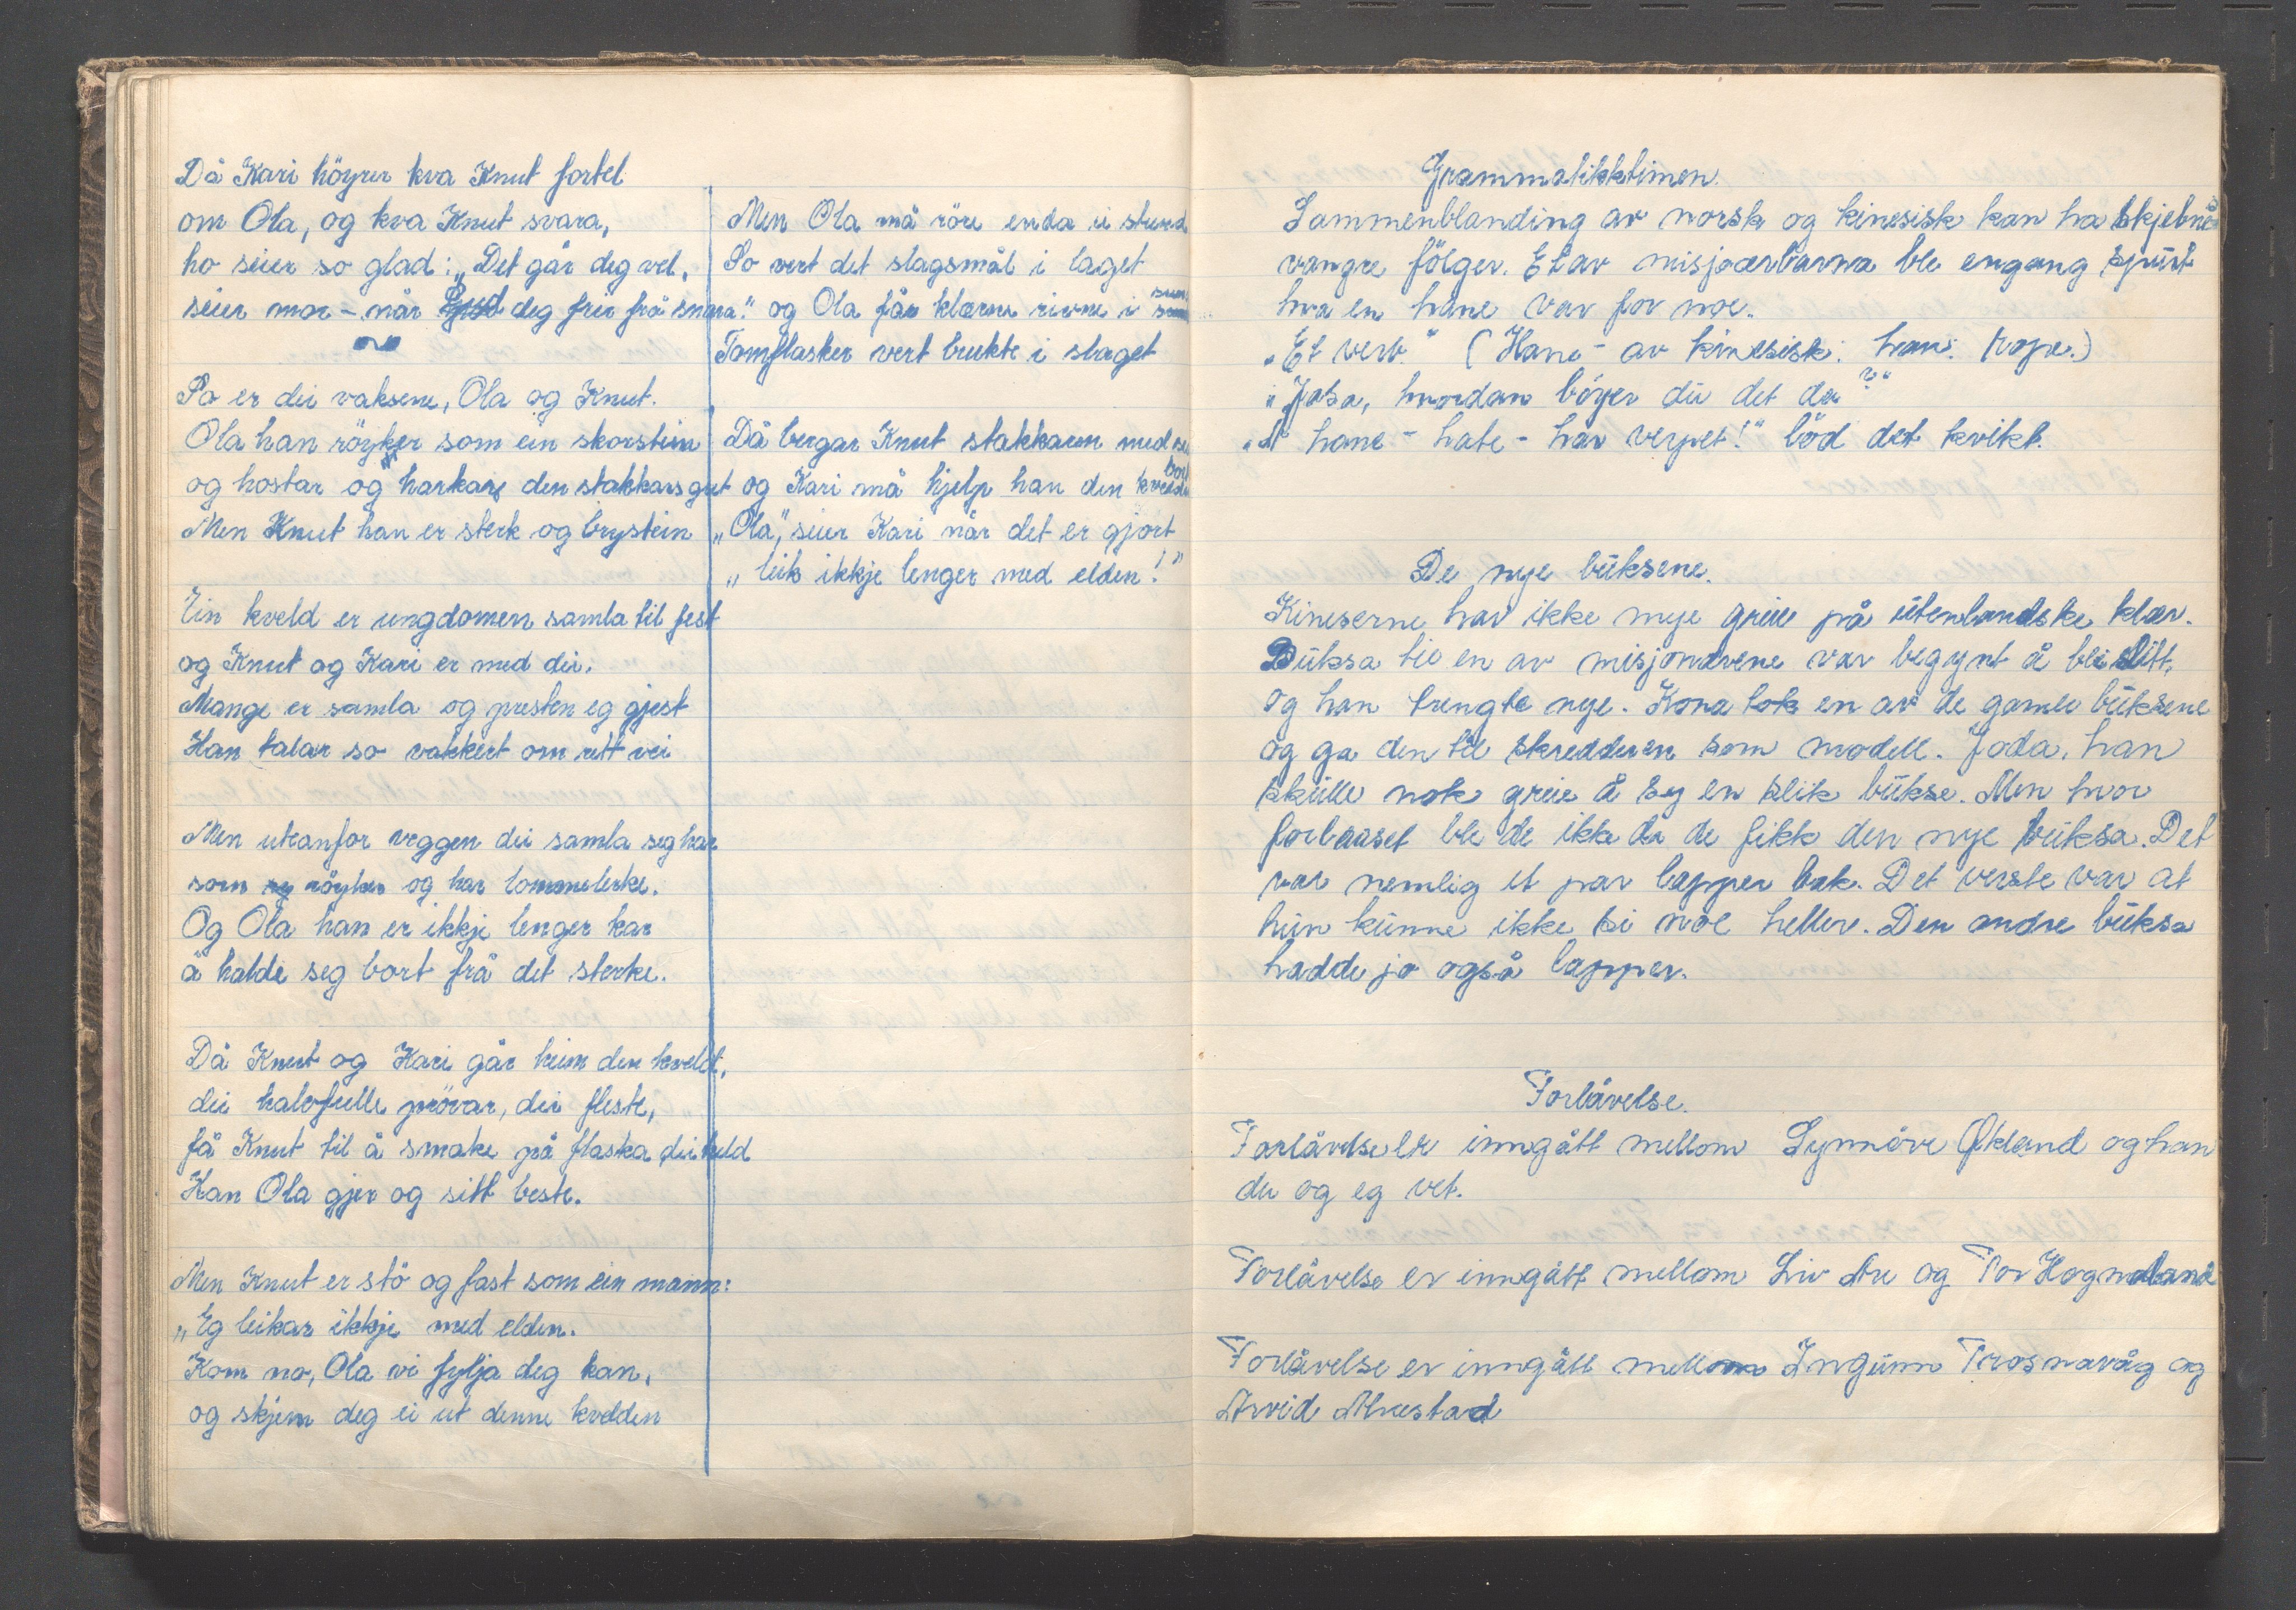 Då Kari höyrer kva Knut fortel
om Ola, og kva Knut svara,
ho seier so glad: „Det går deg vel,
seier mor – når Gud deg frir frå snara."
So er dei vaksene, Ola og Knut.
Ola han röyker som ein skorstein
og hostar og harkar den stakkars gut
Men Knut han er sterk og brystein
Ein kveld er ungdomen samla til fest
og Knut og Kari er med dei.
Mange er samla og presten eg gjest
Han talar so vakkert om rett vei
Men uteanfor veggen dei samla seg har
som röyker og har lommelerke.
Og Ola han er ikkje lenger kar
å halde seg bort frå det sterke.
Då Knut og Kari går heim den kveld,
dei halvfulle prövar, dei fleste,
få Knut til å smake på flaska dei held
Han Ola gjer og sitt beste.
Men Knut er stö og fast som ein mann:
„Eg leikar ikkje med elden.
Kom no, Ola vi fylja deg kan,
og skjem deg ei ut denne kvelden
Men Ola må röre enda ei stund
So vert det slagsmål i laget
og Ola får klærne rivne i sund
Tomflasker vert brukte i slaget
Då bergar Knut stakkaren med seg
og Kari må hjelp han den kvelden
„Ola", seier Kari når det er gjort
„leik ikkje lenger med elden!"
Grammatikktimen.
Sammenblanding av norsk og kinesisk kan ha skjebne
vangre fölger. Et av misjoærbarna ble engang spurt
hva en hane var for noe.
„Et verb." (Hane – av kinesisk: han: rope.)
„Jasa, hvordan böyer du det da?"
„Å hane – hate – har verpet!" löd det kvikt.
De nye buksene.
Kineserne har ikke mye greie på utenlandske klær.
Buksa til en av misjonærene var begynt å bli slitt,
og han trengte nye. Kona tok en av de gamle buksene
og ga den til skredderen som modell. Joda, han
skulle nok greie å sy en slik bukse. Men hvor
forbauset ble de ikke da de fikk den nye buksa. Det
var nemlig et par lapper bak. Det verste var at
hun kunne ikke si noe heller. Den andre buksa
hadde jo også lapper.
Forlåvelse.
Forlåvelse er inngått mellom Synnöve Økland og han
du og eg vet.
Forlåvelse er inngått mellom Liv Are og Tor Hognaland
Forlåvelse er inngått mellom Ingunn Trosnavåg og
Arvid Alvestad